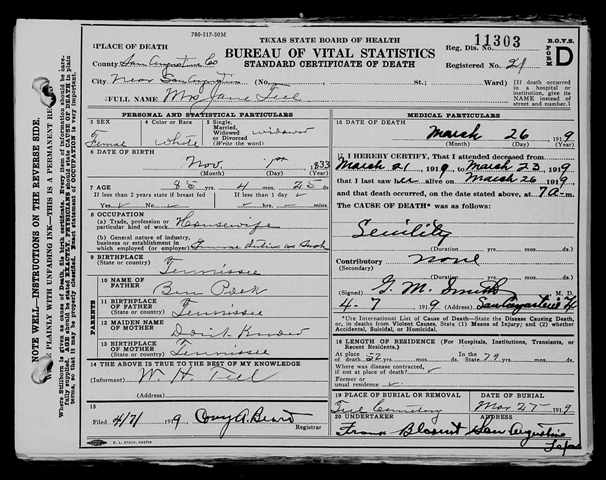 780-317-50M
TEXAS STATE BOARD OF HEALTH
BUREAU OF VITAL STATISTICS
STANDARD CERTIFICATE OF DEATH
Reg. Dis. No. 11303
Registered No. 21
B.O.V.S.
FORM D
1 PLACE OF DEATH
County San Augustine Co
City Near San Augustine (No. St.; Ward)
(If death occurred in a hospital or institution, give its NAME instead of street and number.)
2 FULL NAME Mrs Jane Teel
PERSONAL AND STATISTICAL PARTICULARS
3 SEX Female
4 Color or Race White
5 Single, Married, Widowed or Divorced (Write the word) widowed
6 DATE OF BIRTH
Nov. 1833
(Month) (Day) (Year)
7 AGE 85 yrs. 4 mos. 25 ds.
If less than 2 years state if breast fed If less than 1 day
Yes No hrs. min.
8 OCCUPATION
(a) Trade, profession or particular kind of work Housewife
(b) General nature of industry, business or establishment in which employed (or employer)
9 BIRTHPLACE
(State or country) Tennissee
PARENTS
10 NAME OF FATHER Ben Peek
11 BIRTHPLACE OF FATHER
(State or country) Tennissee
12 MAIDEN NAME OF MOTHER Dont Know
13 BIRTHPLACE OF MOTHER
(State or country) Tennissee
14 THE ABOVE IS TRUE TO THE BEST OF MY KNOWLEDGE
(Informant) W. H. Teel
(Address)
15
Filed 4/7/ 1919 Beard
Registrar
MEDICAL PARTICULARS
16 DATE OF DEATH
March 26 1919
(Month) (Day) (Year)
17 I HEREBY CERTIFY, That I attended deceased from
March 21 1919, to March 23 1919
that I last saw her alive on March 26 1919
and that death occurred, on the date stated above, at 7 a m.
The CAUSE OF DEATH* was as follows:
Senility
(Duration yrs. mos. ds.)
Contributory none
(Secondary)
(Duration yrs. mos. ds.)
(Signed) G. M. Smith M. D.
4-7 1919 (Address) San Augustine
*Use International List of Cause of Death—State the Disease Causing Death, or, in deaths from Violent Causes, State (1) Means of Injury; and (2) whether Accidental, Suicidal, or Homicidal.
18 LENGTH OF RESIDENCE (For Hospitals, Institutions, Transients, or Recent Residents.)
At place of death 52 yrs. mos. ds. In the State 79 yrs. mos. ds.
Where was disease contracted, if not at place of death?
Former or usual residence
19 PLACE OF BURIAL OR REMOVAL Teel Cemetery
DATE OF BURIAL Mar 27 1919
20 UNDERTAKER Frank Blount
ADDRESS San Augustine
NOTE WELL—INSTRUCTIONS ON THE REVERSE SIDE.
PLAINLY WITH UNFADING INK—THIS IS A PERMANENT